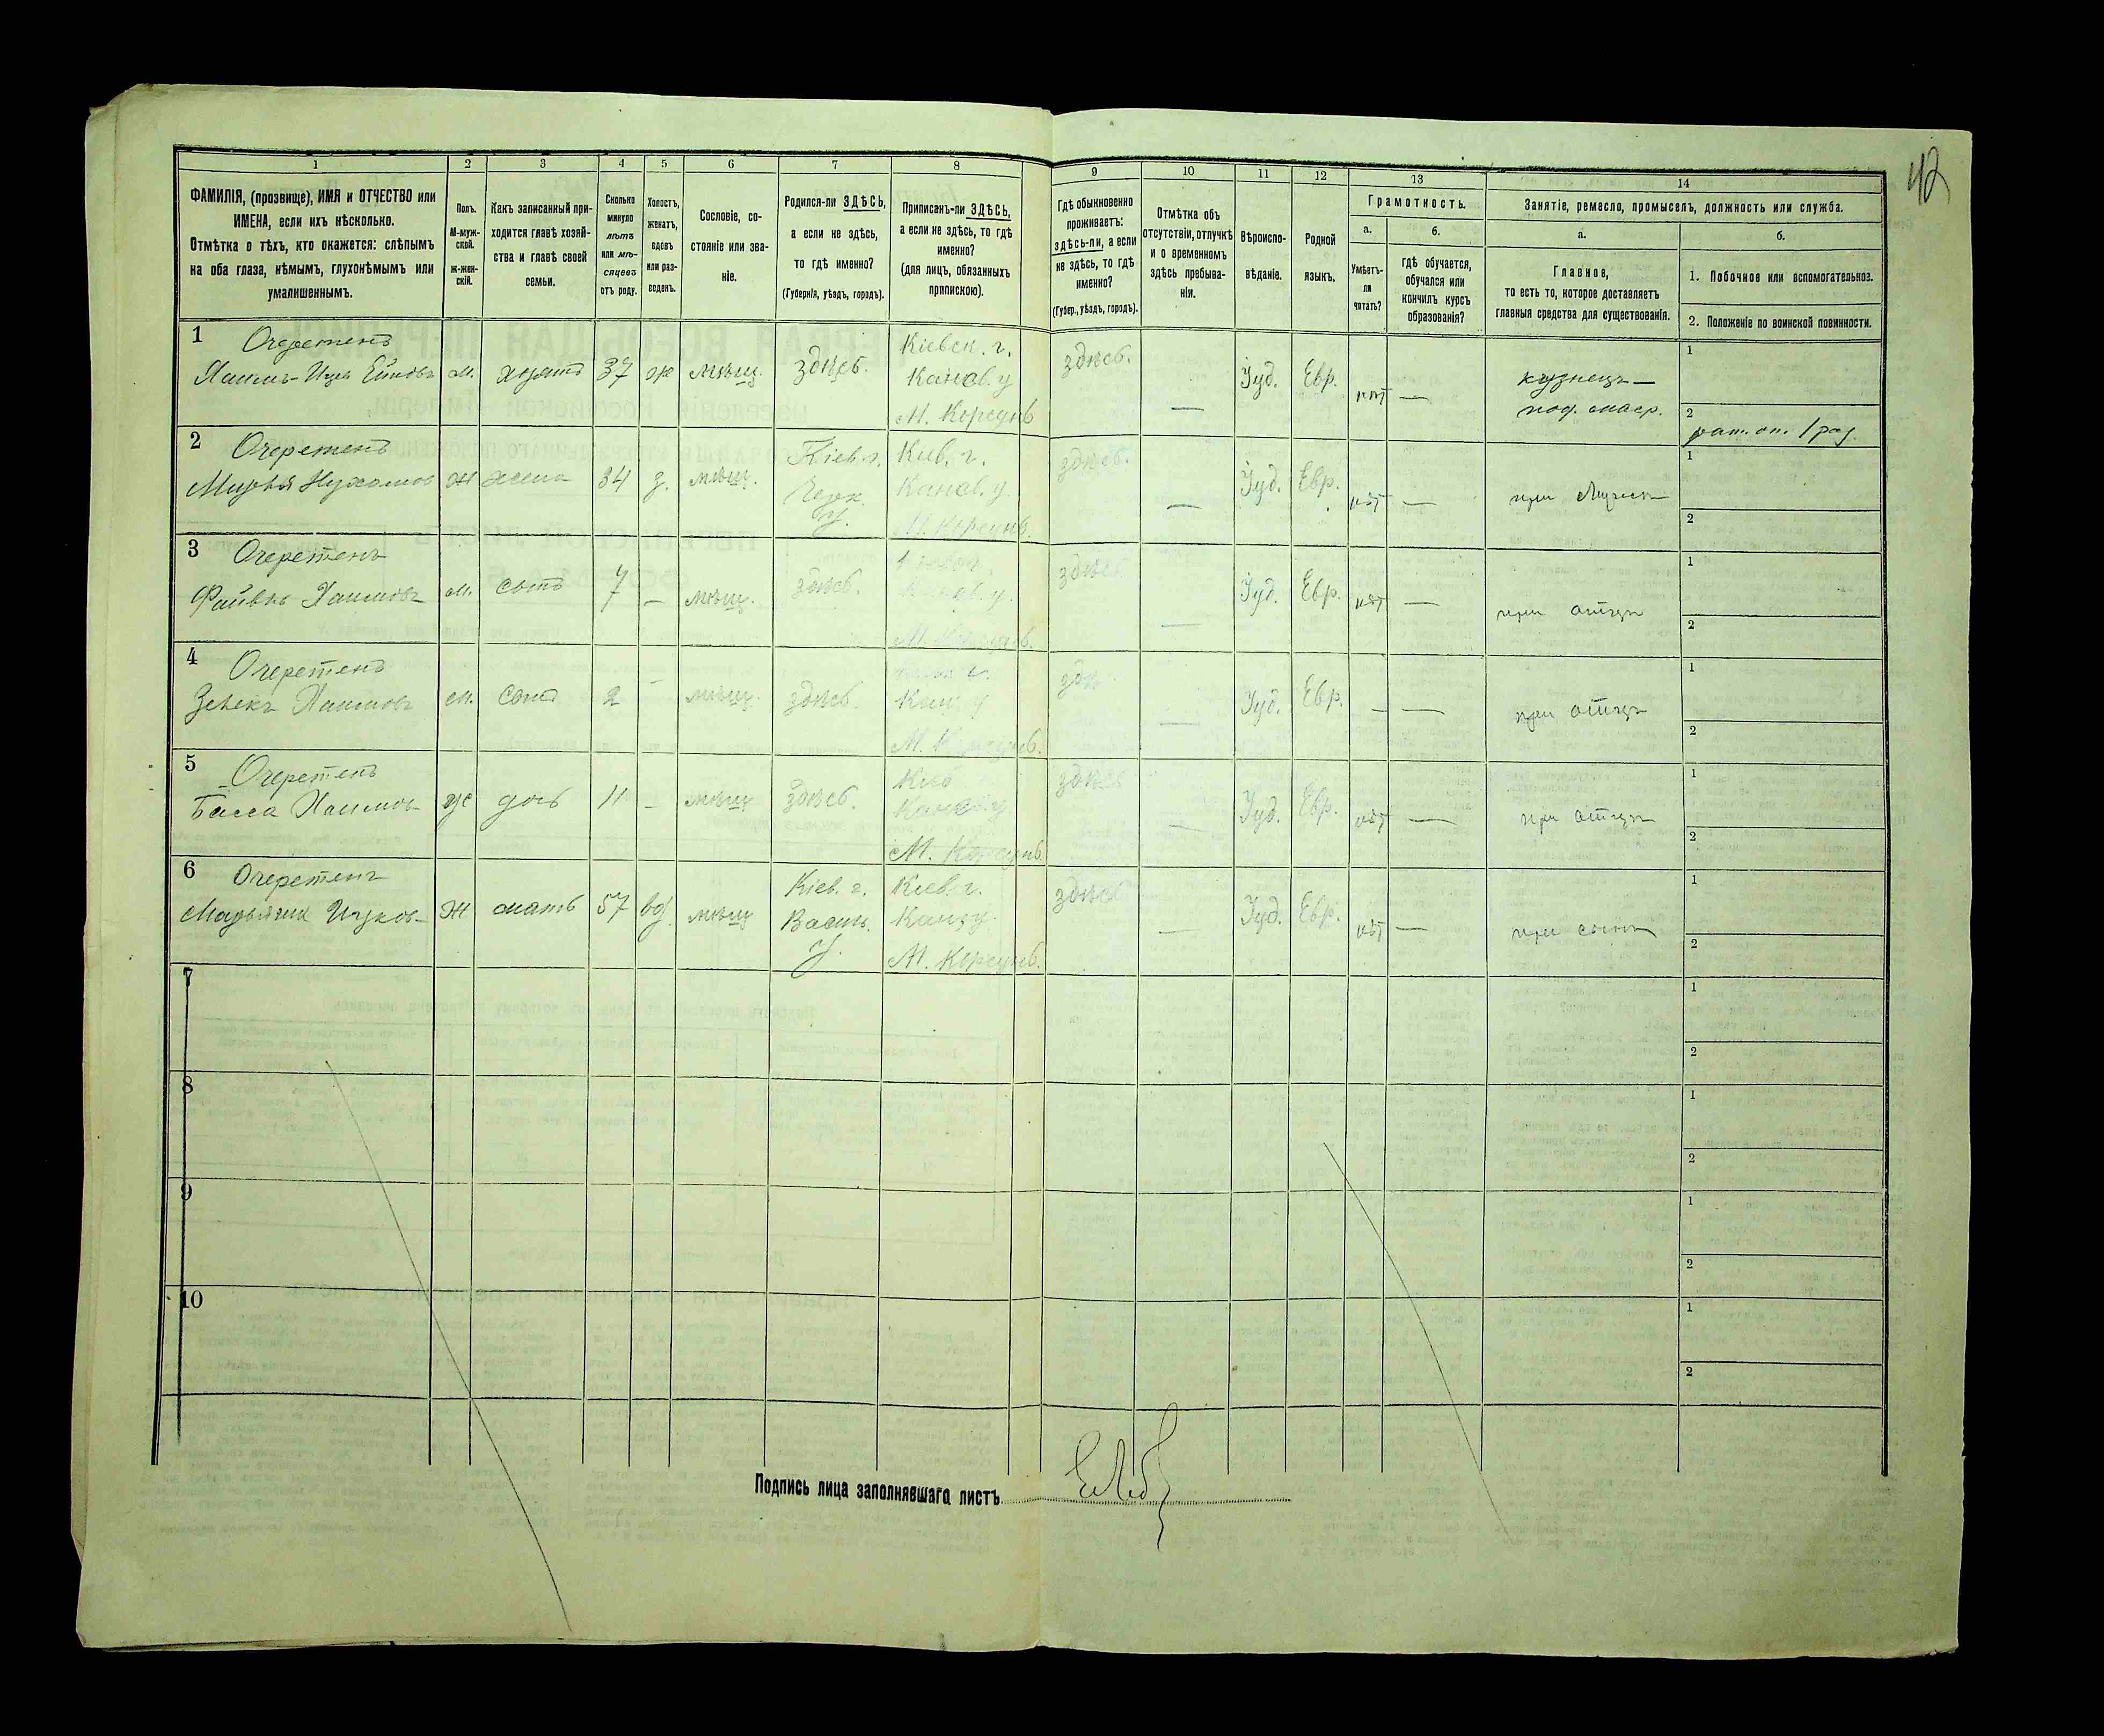 42
1 2 3 4 5 6 7 8 9 10 11 12 13 14
ФАМИЛІЯ, (прозвище), ИМЯ и ОТЧЕСТВО или
ИМЕНА, если ихъ нѣсколько.
Отмѣтка о тѣхъ, кто окажется: слѣпымъ
на оба глаза, нѣмымъ, глухонѣмымъ или
умалишеннымъ.
Полъ.
М-муж-
ской.
ж-жен-
скій.
Какъ записанный при-
ходится главѣ хозяй-
ства и главѣ своей
семьи.
Сколько
минуло
лѣтъ
или мѣ-
сяцевъ
отъ роду.
Холостъ,
женатъ,
вдовъ
или раз-
веденъ.
Сословіе, со-
стояніе или зва-
ніе.
Родился-ли ЗДѢСЬ,
а если не здѣсь,
то гдѣ именно?
(Губернія, уѣздъ, городъ).
Приписанъ-ли ЗДѢСЬ,
а если не здѣсь, то гдѣ
именно?
(для лицъ, обязанныхъ
припискою).
Гдѣ обыкновенно
проживаетъ:
здѣсь-ли, а если
не здѣсь, то гдѣ
именно?
(Губер., уѣздъ, городъ).
Отмѣтка объ
отсутствіи, отлучкѣ
и о временномъ
здѣсь пребыва-
ніи.
Вѣроиспо-
вѣданіе.
Родной
языкъ.
Грамотность.
а.
Умѣетъ-
ли
читать?
б.
гдѣ обучается,
обучался или
кончилъ курсъ
образованія?
Занятіе, ремесло, промыселъ, должность или служба.
а.
Главное,
то есть то, которое доставляетъ
главныя средства для существованія.
б.
1. Побочное или вспомогательное.
2. Положеніе по воинской повинности.
1 Очеретенъ
м. 37 мѣщ. здѣсь.
Кіевск. г.
Канев. у
М. Корсунь
здѣсь. — Іуд. Евр. нѣт —
кузнецъ —
1
2
2 Очеретенъ
Ж жена 34 з. мѣщ.
Кіев. г.
Черк.
у.
Кив. г.
Канев. у.
М. Корсунь.
здѣсь. — Іуд. Евр. нѣт —
1
2
3 Очеретенъ
м. сынъ 7 — мѣщ. здѣсь.
Канев. у.
М. Корсунь.
здѣсь — Іуд. Евр. нѣт — при отцѣ
1
2
4 Очеретенъ
м. сынъ 2 — мѣщ. здѣсь.
М. Корсунь.
— Іуд. Евр. — — при отцѣ
1
2
5 Очеретенъ
ж дочь 11 — мѣщ здѣсь.
Кив
М. Корсунь.
здѣсь — Іуд. Евр. нѣт — при отцѣ
1
2
6 Очеретенъ
Ж мать 57 вд. мѣщ
Кіев. г.
Васил.
У.
Киев. г.
Кан. у.
М. Корсунь.
здѣсь — Іуд. Евр. нѣт — при сынѣ
1
2
7
1
2
8
1
2
9
1
2
10
1
2
Подпись лица заполнявшаго листъ